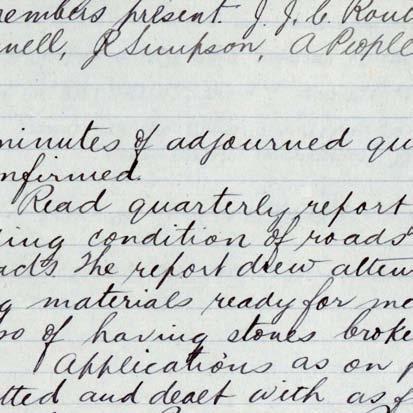 embers present. J. J. C. Rout
nell, J R Simpson, A People
minutes of adjourned qu
nfirmed.
Read quarterly report
ing condition of roads
ads The report drew atten
g materials ready for me
so of having stones broke
Applications as on p
tted and dealt with as f